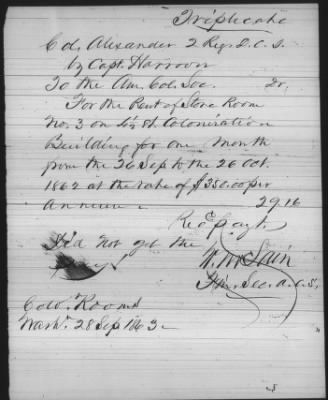 Triplicate
Col. Alexander 2 Reg. D.C.V.
by Capt. Harrover
To the Am. Col. Soc. Dr.
For the Rent of Store Room
No. 3 on 4½ St. Colonization
Building for one Month
from the 26 Sep to the 26 Oct.
1862 at the rate of $350.00 per
Annum 29.16
Rec'd pay't
Did not get the
W. McLain
Fin. Sec. A.C.S.
Colo. Rooms
Wash'n. 28 Sep 1863